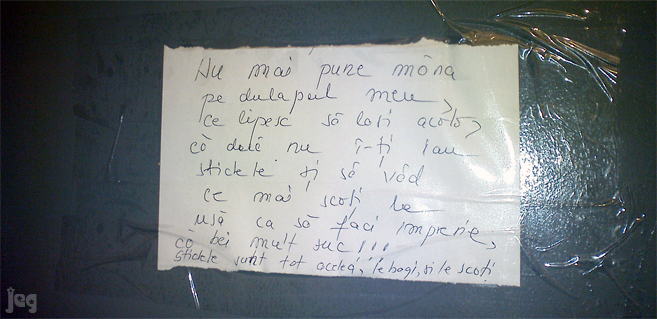 Nu mai pune mâna
pe dulapul meu,
ce lipesc să lași acolo,
că dacă nu î-ți iau
sticlele și să văd
ce mai scoți la
ușă ca să faci impresie,
că bei mult suc!!!
Sticlele sunt tot acelea, le bagi, și le scoți
jeg